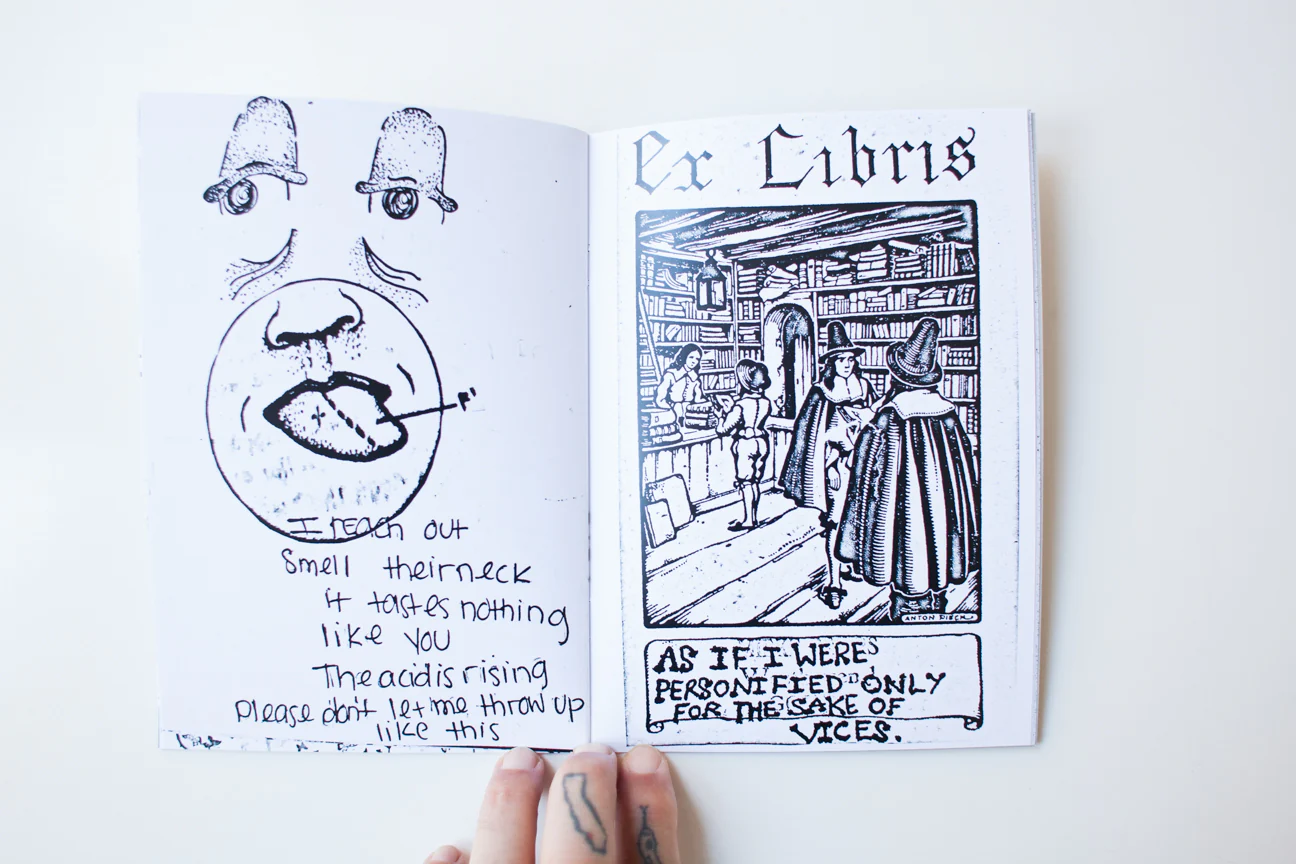 I reach out
Smell their neck
it tastes nothing
like you
The acid is rising
please don't let me throw up
like this
Ex Libris
ANTON PIECK
AS IF I WERE
PERSONIFIED ONLY
FOR THE SAKE OF
VICES.